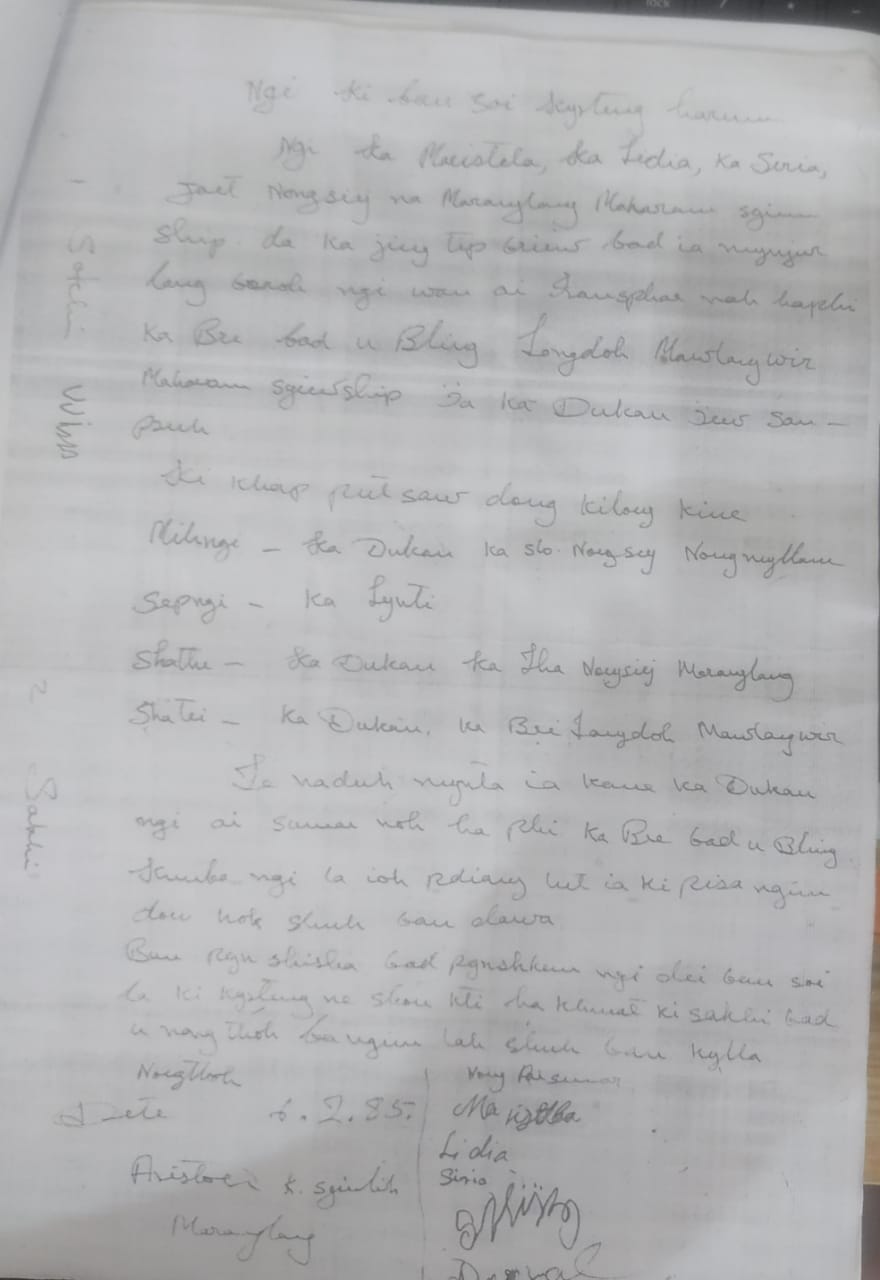 Ngi ki ban soi kyrteng harum
Ngi Ka Maristela, Ka Lidia, Ka Siria,
Jait Nongsiej na Maranglang Maharam
ship da ka jing tip briew bad ia
lang baroh ngi wan ai transphar noh hapdi
Ka Bre bad u Bling Longdoh Mawlangwir
Maharam sgiewship ïa ka Dukan iew San-
pneh
Ki khap put saw dong kilong kine
Mihngi - Ka Dukan ka slo. Nongsiej Nongmyllam
Sepngi - Ka Lynti
Shathie - Ka Dukan ka Tha Nongsiej Maranglang
Shatei - Ka Dukan, ka Bri Langdoh Mawlangwir
Te naduh mynta ia kane ka Dukan
ngi ai sumar noh ha phi Ka Bre bad u Bling
Namba ngi la ioh pdiang lut ia ki pisa ngim
don hok shuh ban dawa
Ban pyn shisha bad pynskhem ngi dei ban soi
la ki kyrteng ne shon kti ha khmat ki sakhi bad
u nong thoh ba ngim lah shuh ban kylla
Nongthoh
Date 6.2.85.
K.
Maranglang
Nong Ai sumar
Lidia
Siria
Sakhi
2 Sakhi